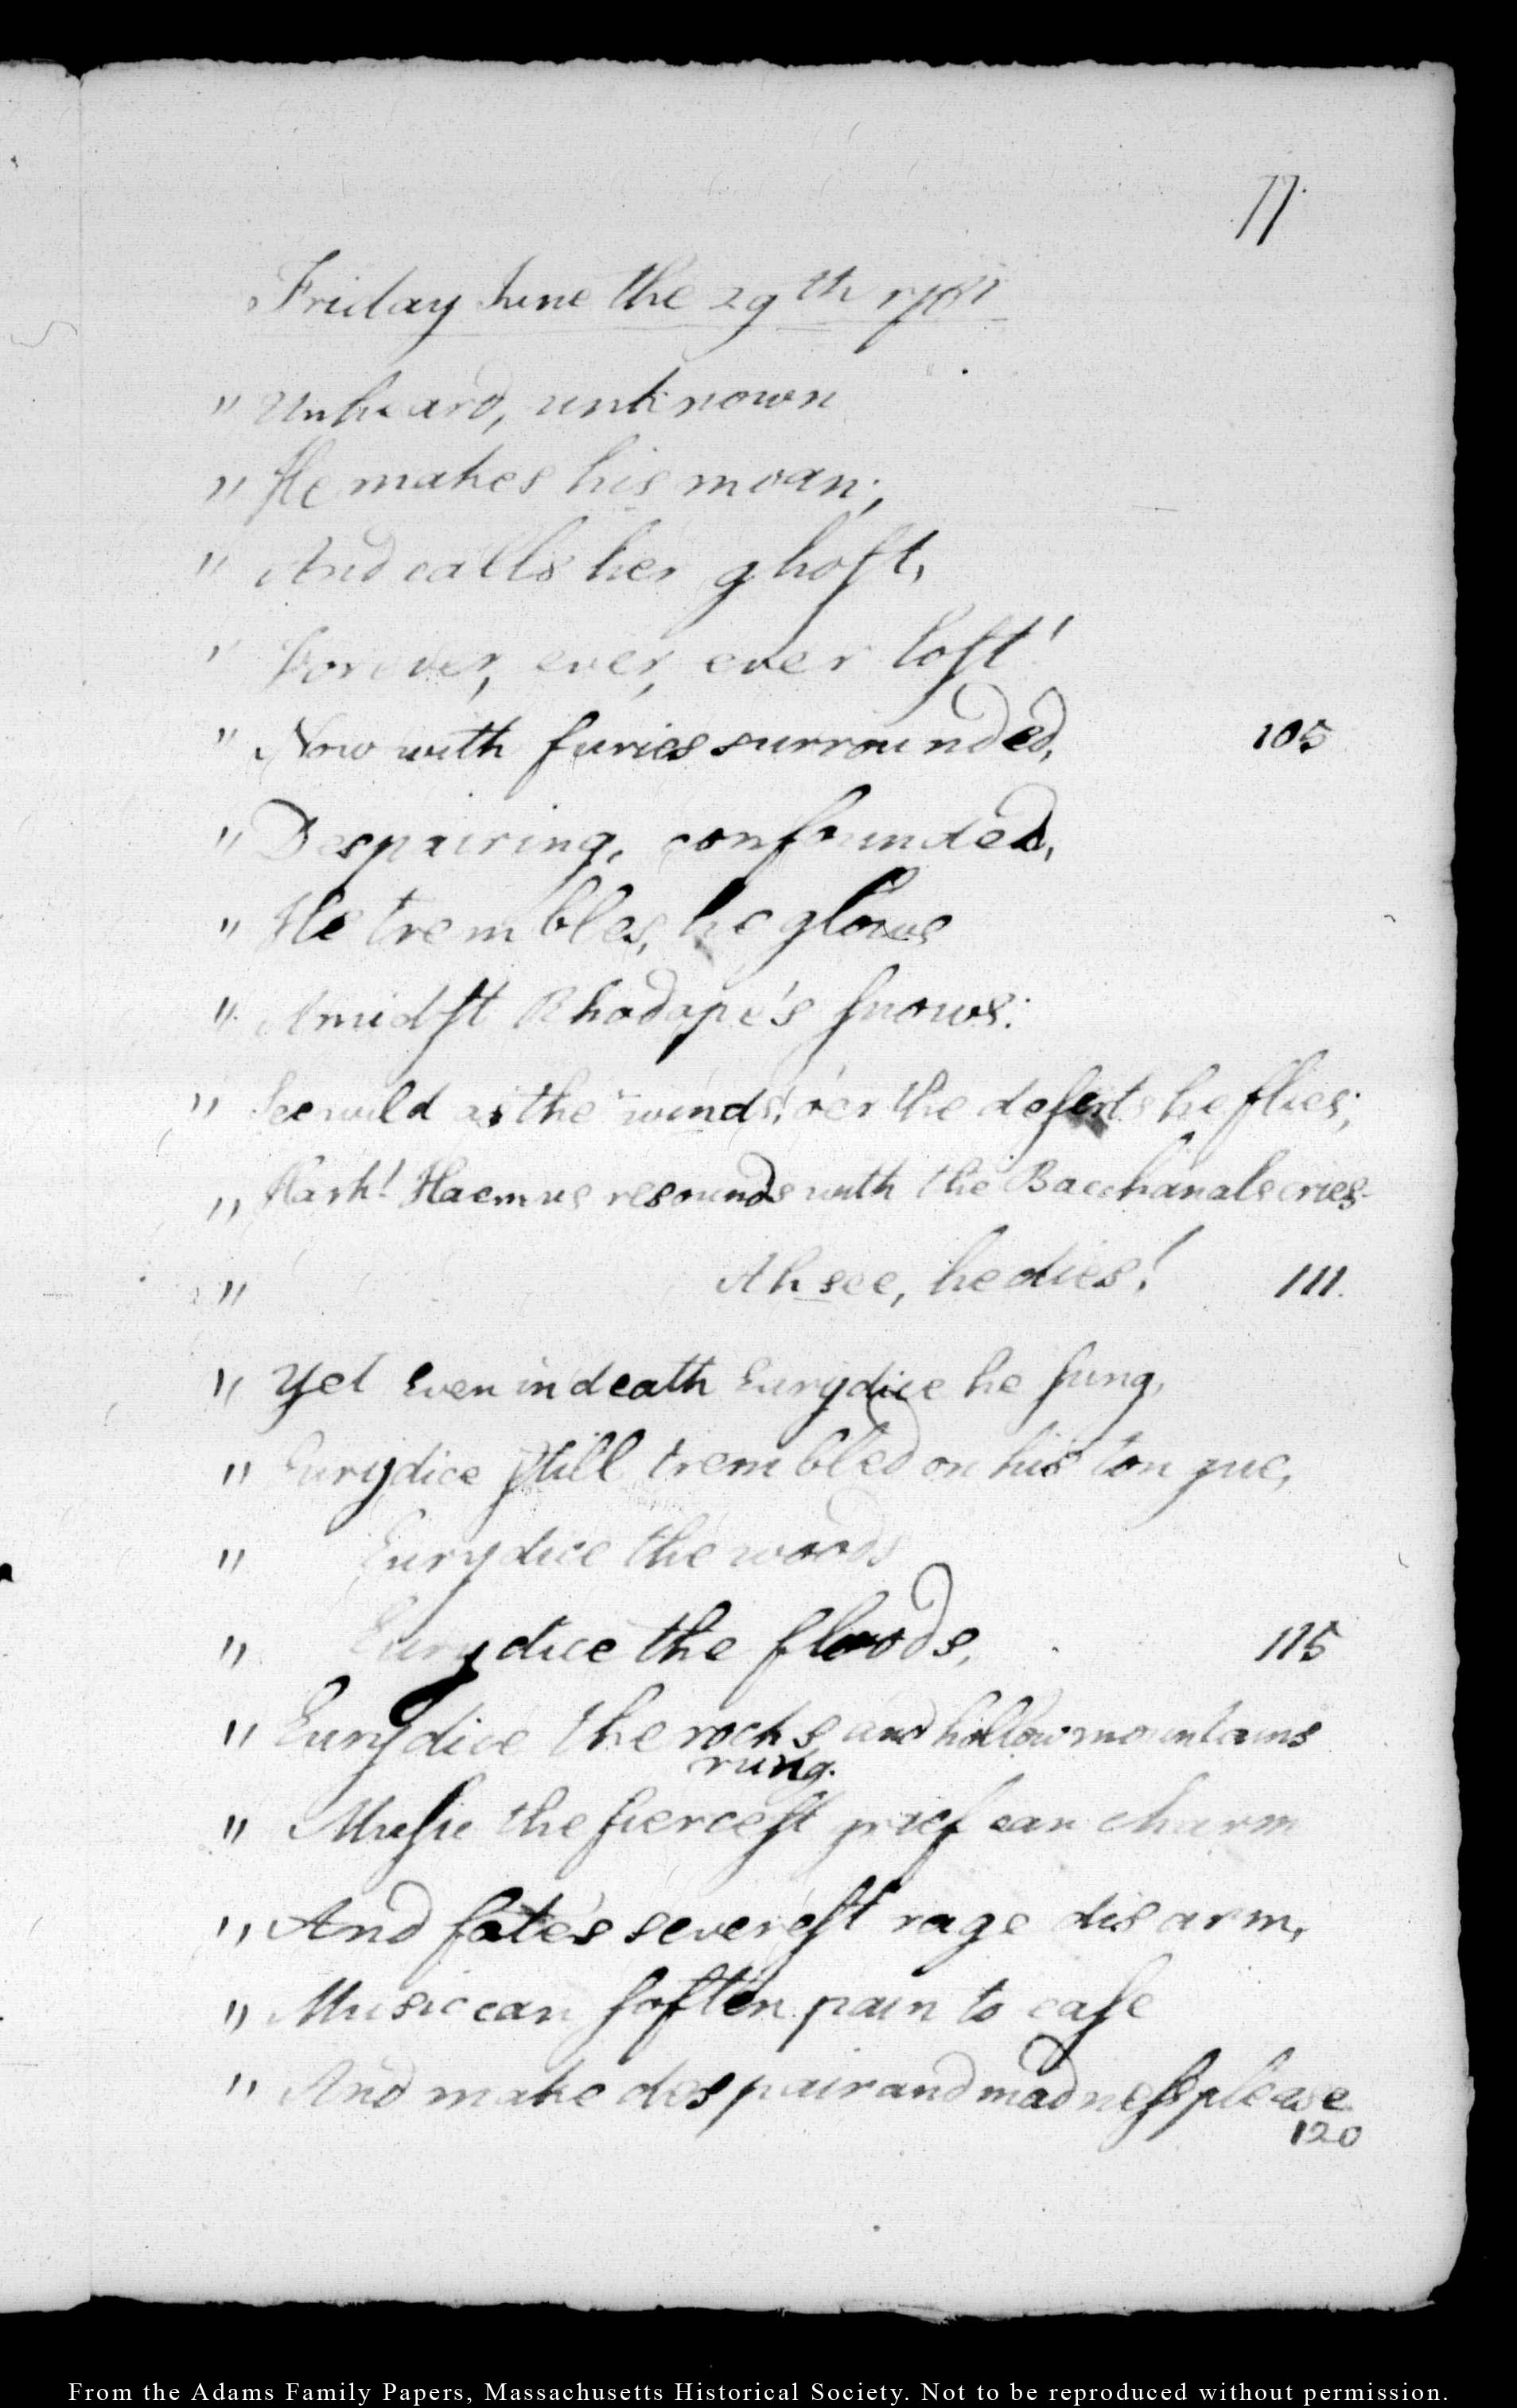 77.
Friday June the 29th 1781
" Unheard, unknown
" He makes his moan;
" And calls her ghost,
" Forever, ever, ever lost!
" Now with furies surrounded, 105
" Despairing, confounded,
" He trembles, he glows
" Amidst Rhodape's snows:
" See wild as the winds! o'er the deserts he flies;
" Hark! Haemus resounds with the Bacchanals cries-
" Ah see, he dies! 111.
" Yet even in death Eurydice he sung,
" Eurydice still trembled on his tongue,
" Eurydice the woods
" Eurydice the floods, 115
" Eurydice the rocks, and hollow mountains
rung.
" Music the fiercest grief can charm
" And fate's severest rage disarm,
" Music can soften pain to ease
" And make despair and madness please
120
From the Adams Family Papers, Massachusetts Historical Society. Not to be reproduced without permission.